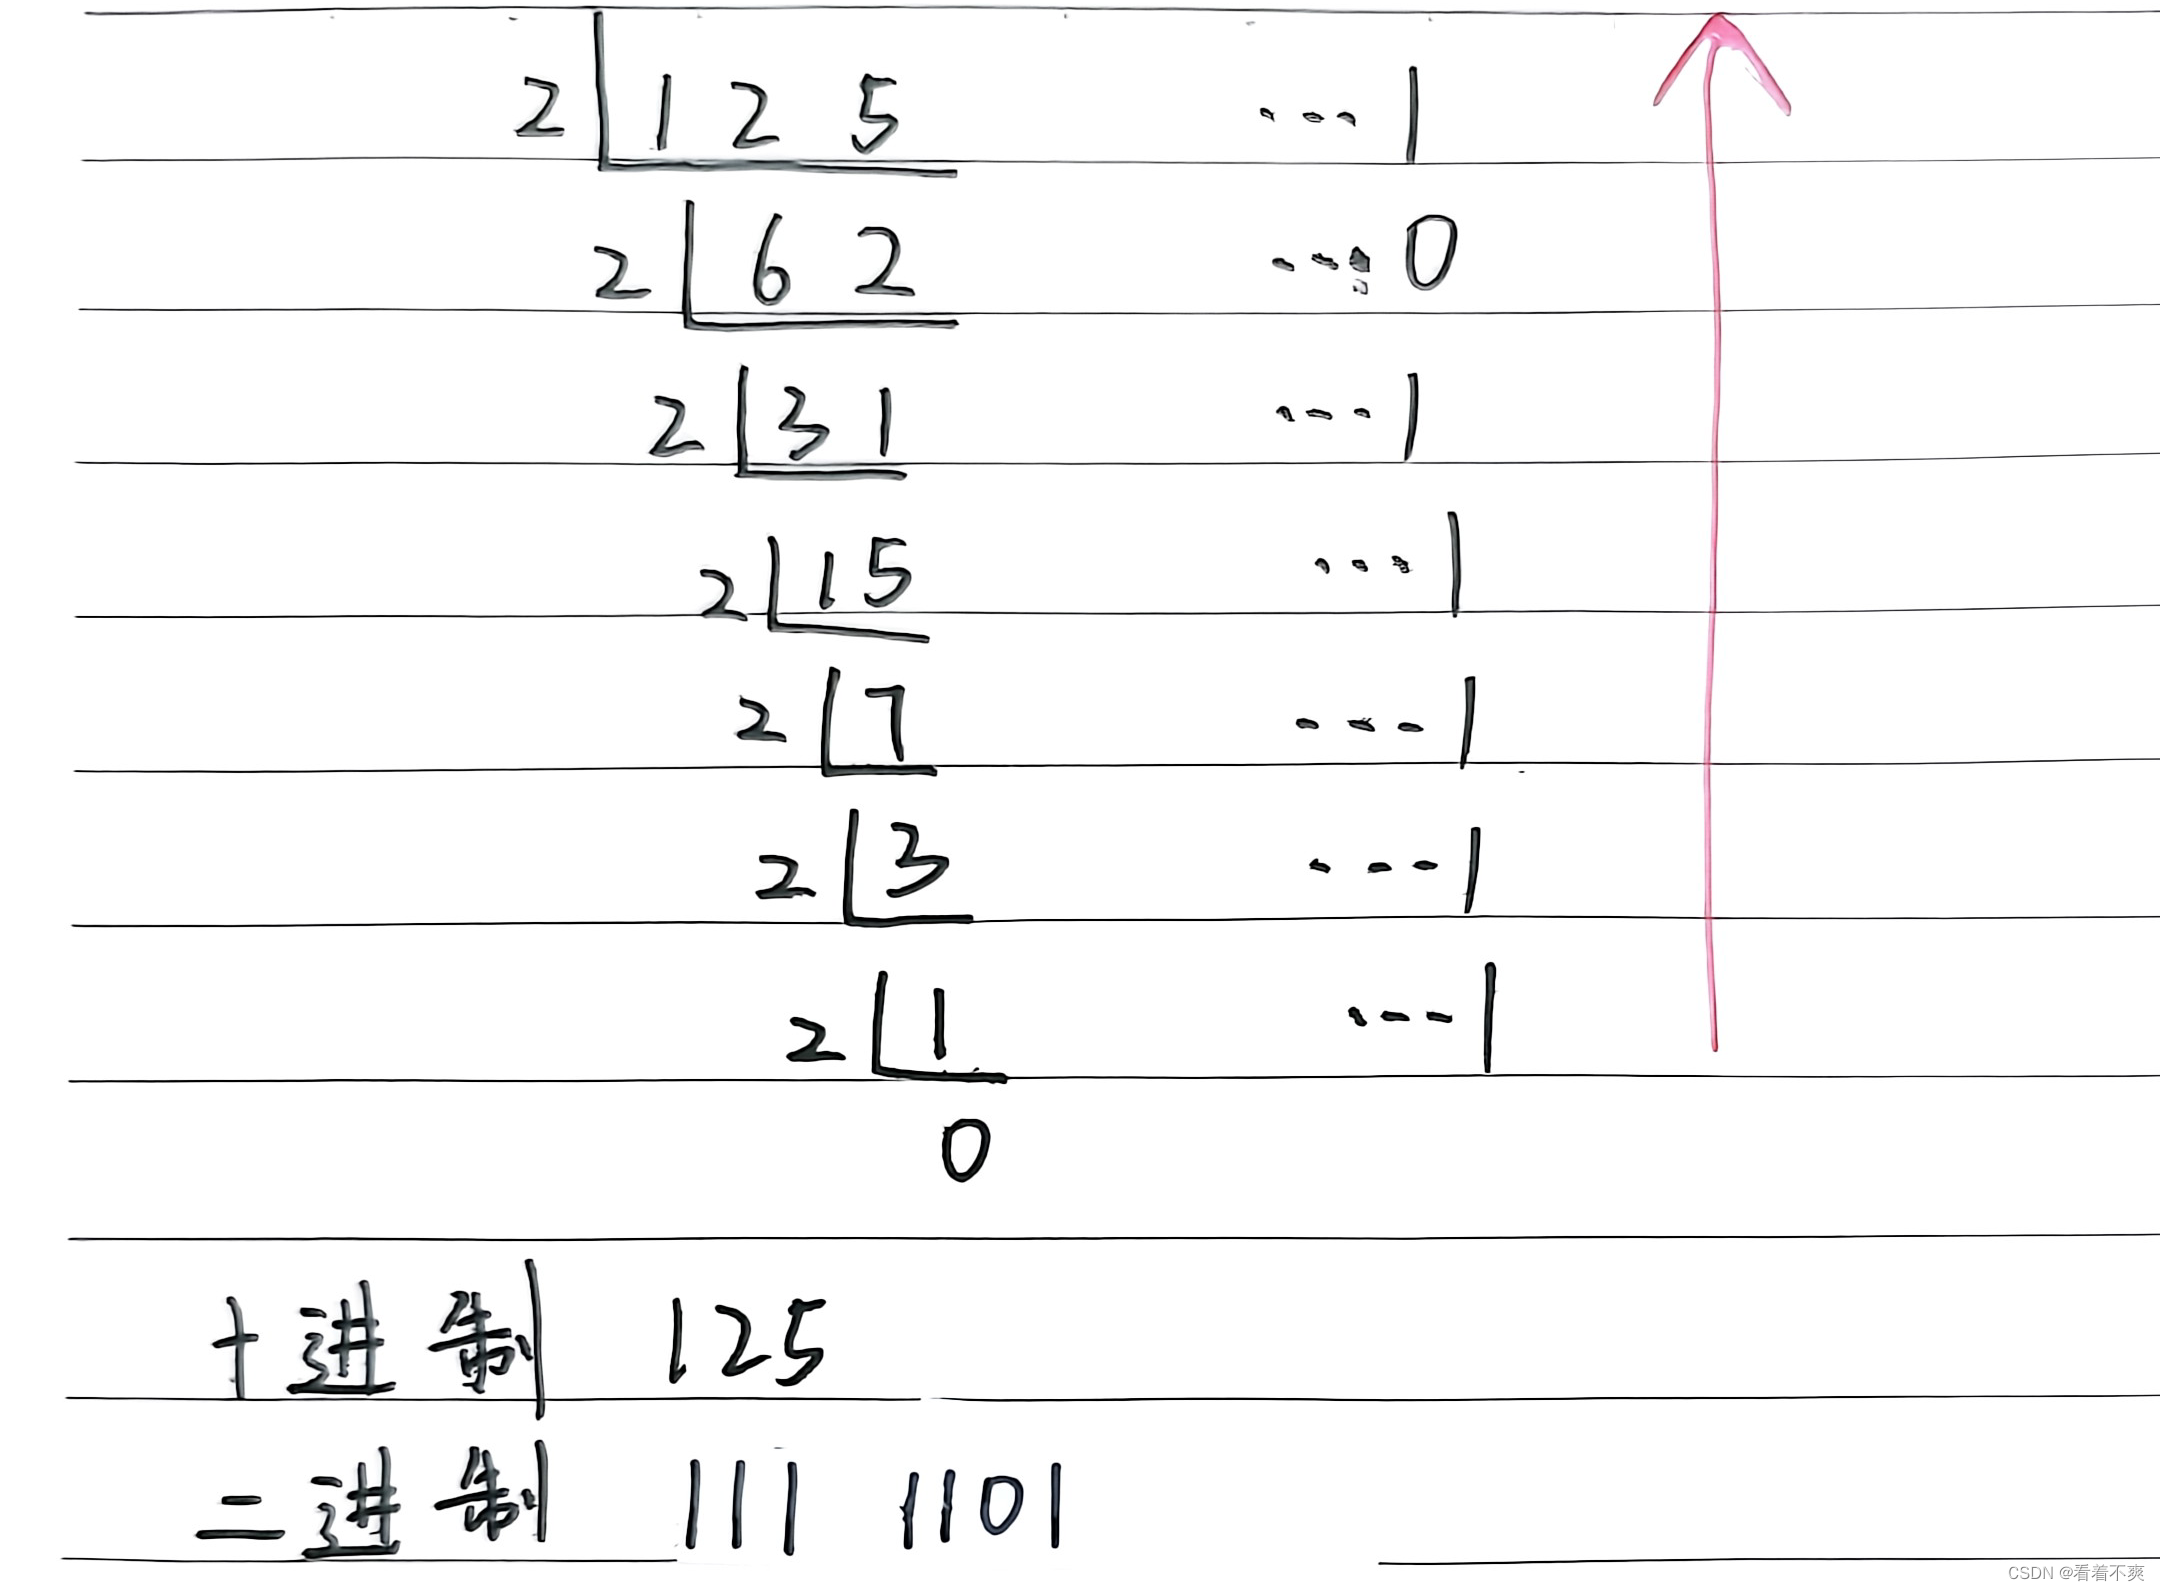 2 125 ···1
2 62 ···0
2 31 ···1
2 15 ···1
2 7 ···1
2 3 ···1
2 1 ···1
0
十进制 125
二进制 111 1101
CSDN @看着不爽